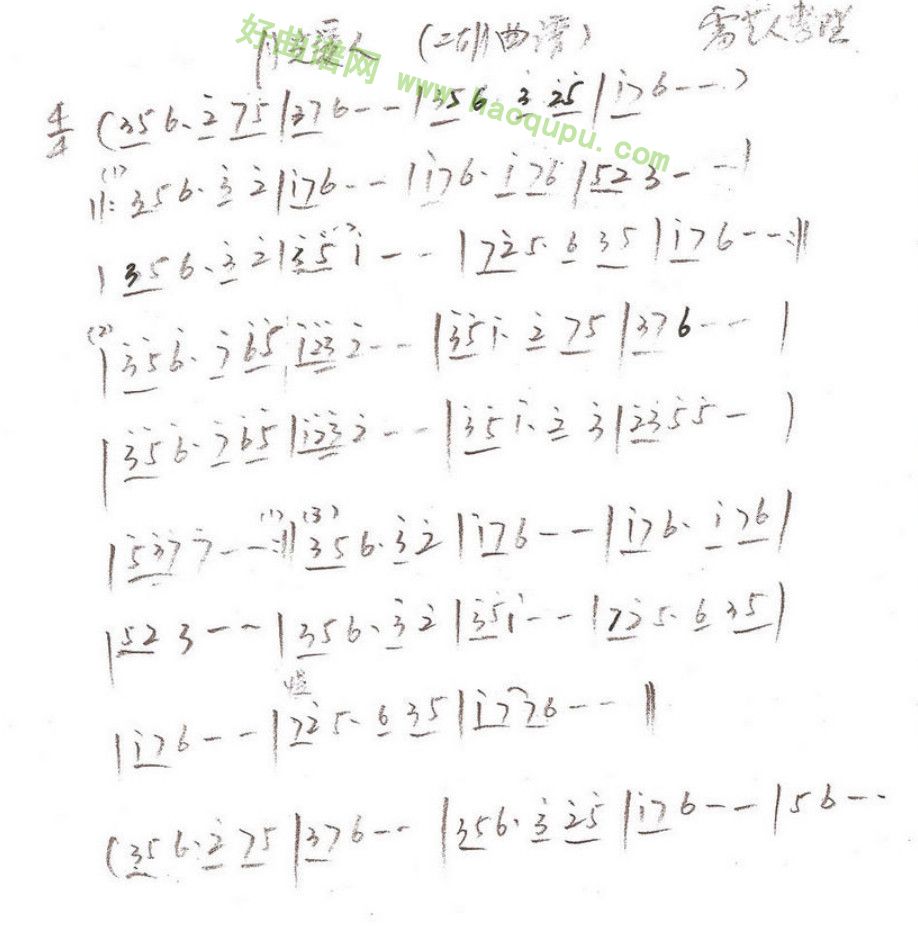 好曲谱网 www.haoqupu.com
(二胡曲谱)
4/4 (356·2̇ 75|376--|356 3̇ 2̇5̇|i̇76--)
(1) ||:356·3̇2̇|i̇76--|i̇76·i̇76|523--|
|356·3̇2̇|3̇5̇i̇--|72̇5·635|i̇76--:||
(2) |3̇5̇6̇·7̇6̇5̇|i̇2̇3̇2̇--|3̇5̇i̇·2̇75|376--|
|3̇5̇6̇·7̇6̇5̇|i̇2̇3̇2̇--|3̇5̇i̇·2̇3̇|2̇3̇5̇5̇-|
|5̇3̇7̇7̇--(1):||(3) 356·3̇2̇|i̇76--|i̇76·i̇76|
|523--|356·3̇2̇|3̇5̇i̇--|72̇5·635|
慢
|i̇76--|72̇5·635|i̇776--||
(356·2̇75|376--|356·3̇2̇5̇|i̇76--|56--